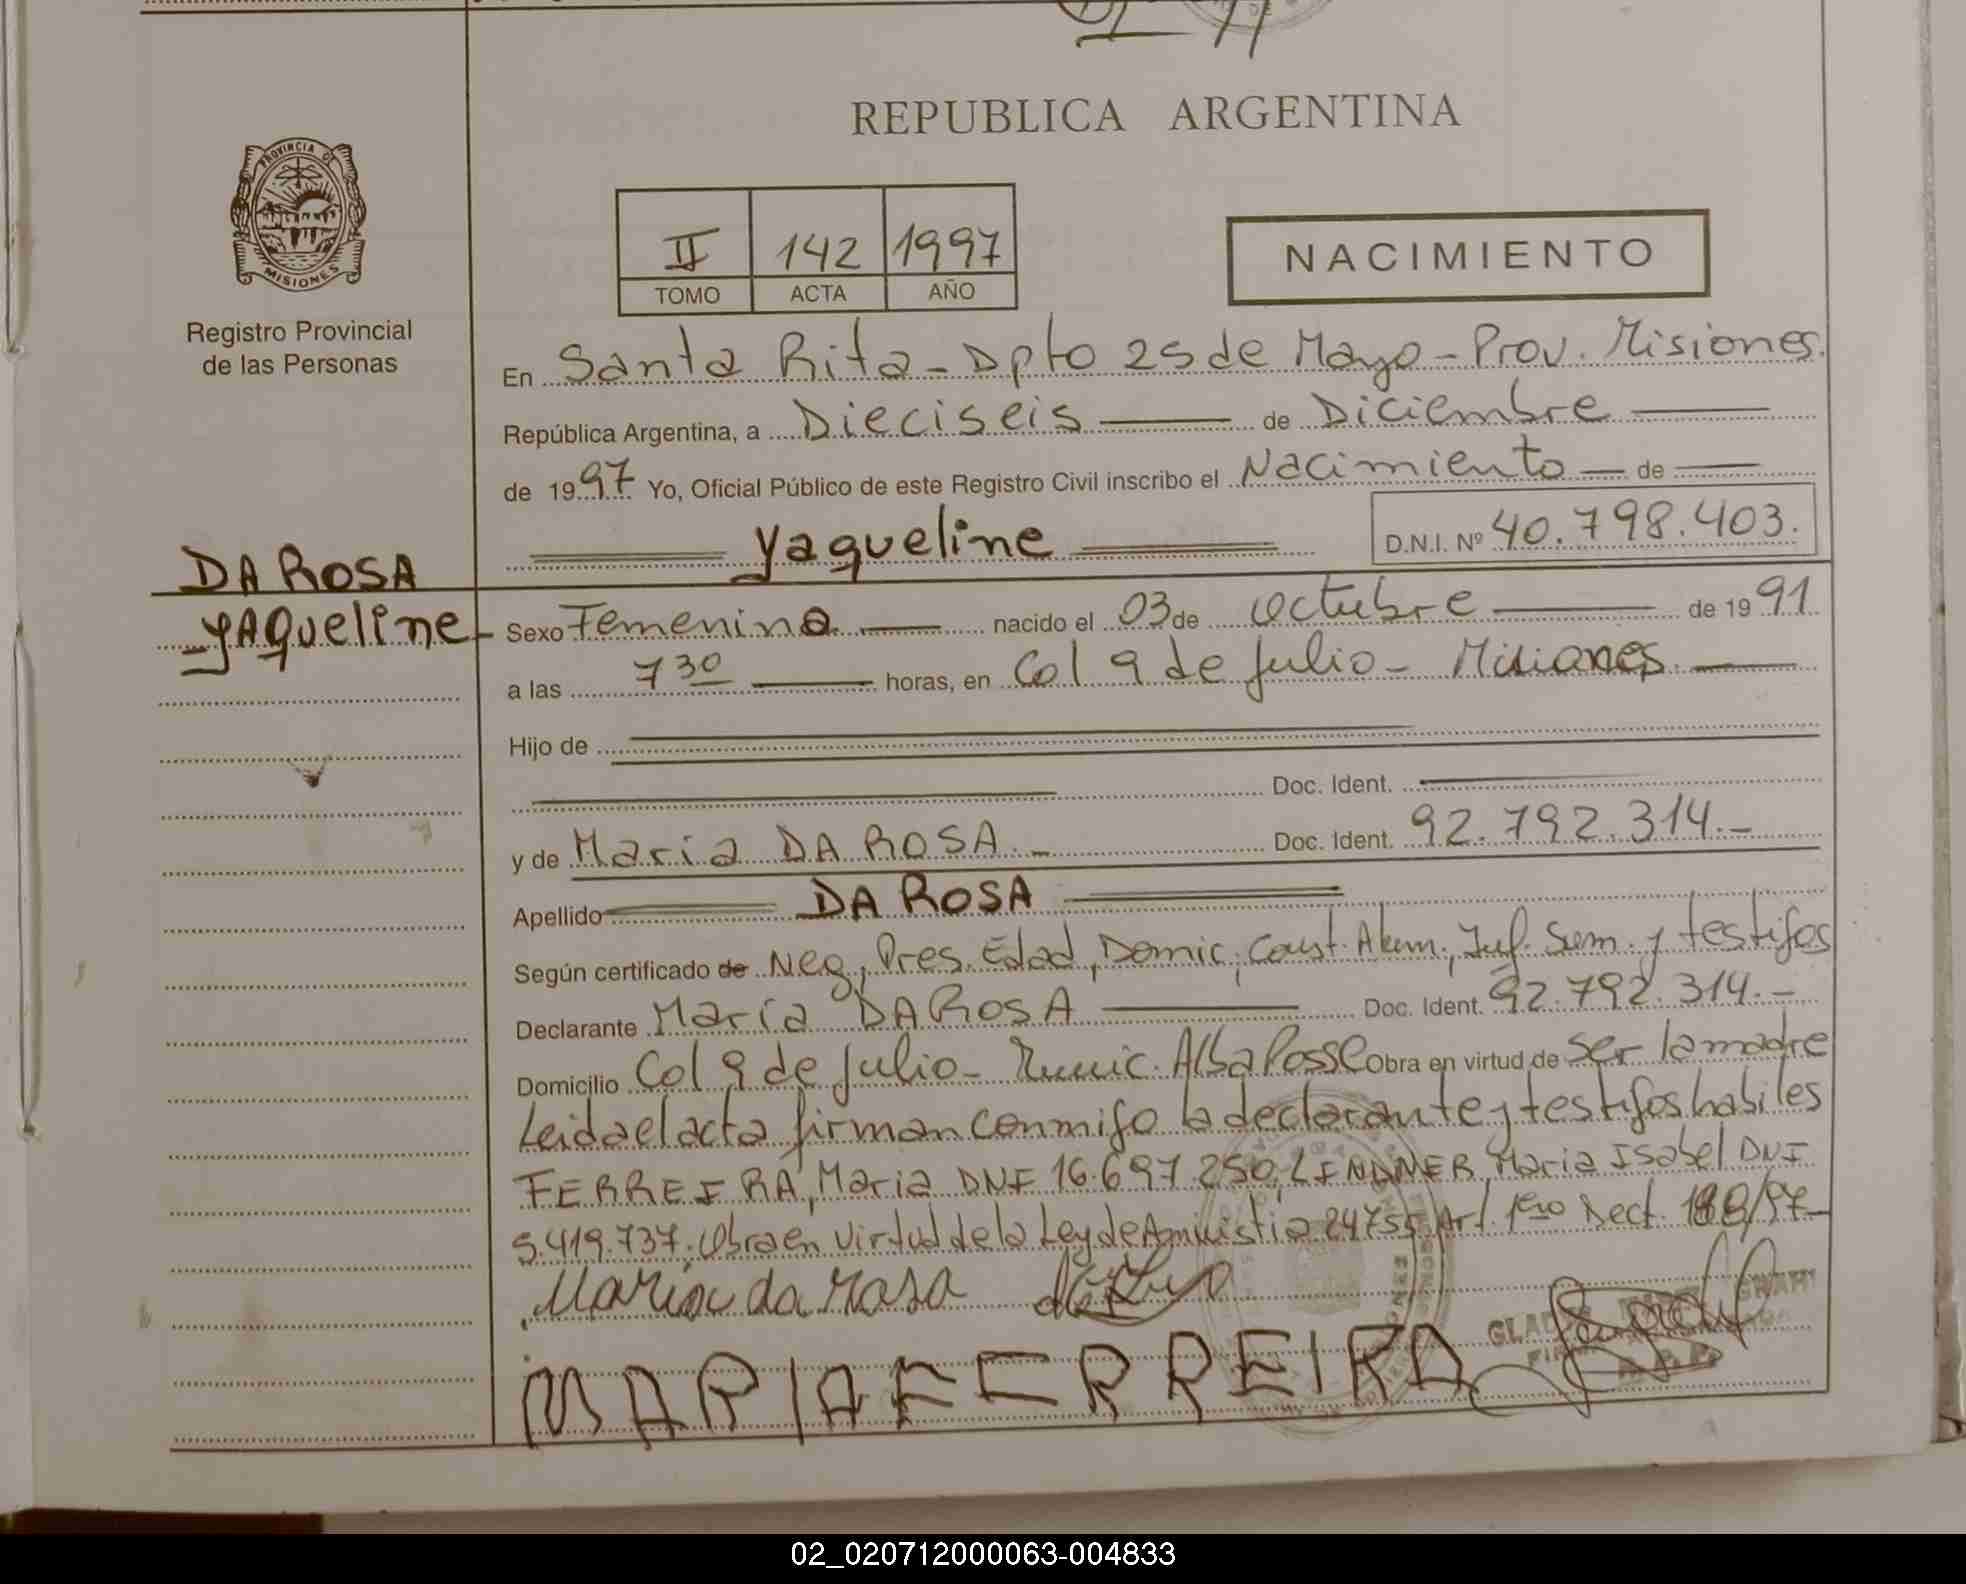 REPUBLICA ARGENTINA
PROVINCIA DE
MISIONES
Registro Provincial
de las Personas
II 142 1997
TOMO ACTA AÑO
NACIMIENTO
En Santa Rita - Dpto 25 de Mayo - Prov. Misiones.
República Argentina, a Dieciseis de Diciembre
de 1997 Yo, Oficial Público de este Registro Civil inscribo el Nacimiento de
Yaqueline D.N.I. Nº 40.798.403.
DA ROSA
YAqueline
Sexo Femenino nacido el 03 de Octubre de 1991
a las 7 30 horas, en Col 9 de Julio - Misiones
Hijo de
Doc. Ident.
y de Maria DA ROSA.- Doc. Ident. 92.792.314.-
Apellido DA ROSA
Según certificado de Neg, Pres. Edad, Domic, Const. Alum, Inf. Sum. y testigos
Declarante Maria DA ROSA Doc. Ident. 92.792.314.-
Domicilio Col 9 de Julio - Munic. Alba Posse Obra en virtud de ser la madre
Leida el acta firman conmigo la declarante y testigos habiles
FERREIRA, Maria DNI 16.697.250, LINDNER, Maria Isabel DNI
5.419.737. Obra en virtud de la Ley de Aministia 24755 Art. 1ro Dect. 188/97-
Maria da rosa
MARIA FERREIRA
02_020712000063-004833